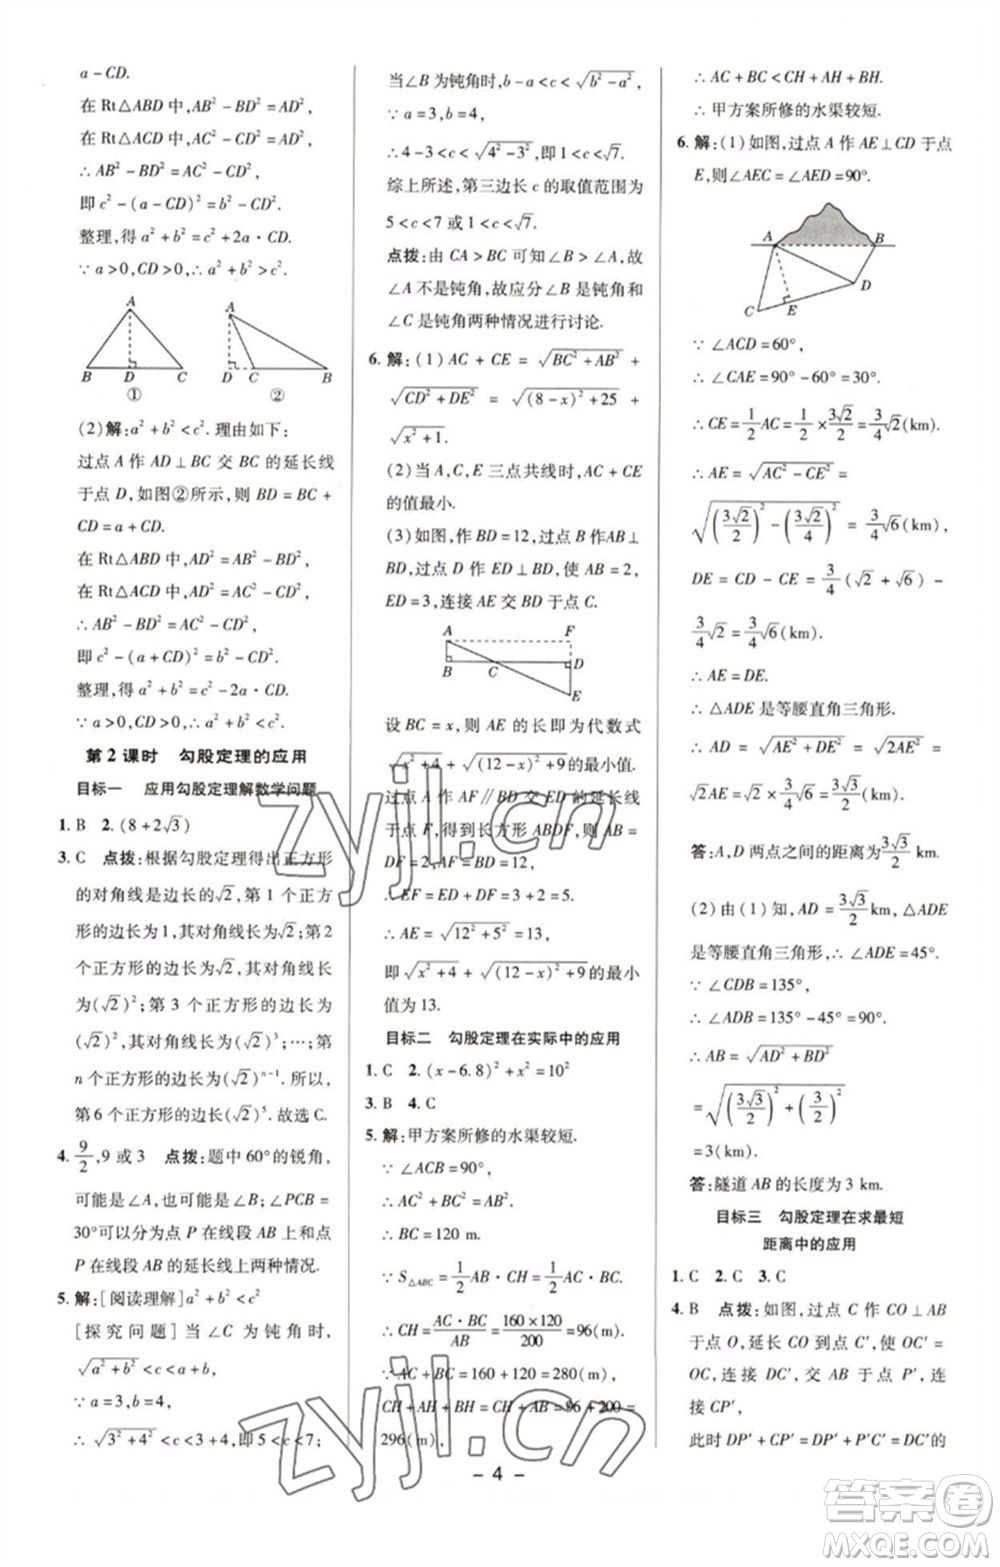 a-CD.
在 Rt△ABD 中,AB²-BD²=AD²,
在 Rt△ACD 中,AC²-CD²=AD²,
∴AB²-BD²=AC²-CD²,
即 c²-(a-CD)²=b²-CD²,
整理,得 a²+b²=c²+2a·CD.
∵a>0,CD>0,∴a²+b²>c².
A
B D C
①
A
D C B
②
(2)解:a²+b²<c². 理由如下:
过点 A 作 AD⊥BC 交 BC 的延长线
于点 D,如图②所示,则 BD=BC+
CD=a+CD.
在 Rt△ABD 中,AD²=AB²-BD²,
在 Rt△ACD 中,AD²=AC²-CD²,
∴AB²-BD²=AC²-CD²,
即 c²-(a+CD)²=b²-CD²,
整理,得 a²+b²=c²-2a·CD.
∵a>0,CD>0,∴a²+b²<c².
第2课时 勾股定理的应用
目标一 应用勾股定理解数学问题
1. B 2. (8+2√3)
3. C 点拨:根据勾股定理得出正方形
的对角线是边长的√2,第 1 个正方
形的边长为1,其对角线长为√2;第2
个正方形的边长为√2,其对角线长
为(√2)²;第 3 个正方形的边长为
(√2)²,其对角线长为(√2)³;…;第
n 个正方形的边长为(√2)ⁿ⁻¹. 所以,
第 6 个正方形的边长为(√2)⁵. 故选 C.
4. 9/2,9 或 3 点拨:题中 60°的锐角,
可能是∠A,也可能是∠B,∠PCB=
30°可以分为点 P 在线段 AB 上和
P 在线段 AB 的延长线上两种情况.
5. 解:[阅读理解]a²+b²<c²
[探究问题]当∠C 为钝角时,
√(a²+b²)<c<a+b,
∵a=3,b=4,
∴√(3²+4²)<c<3+4,即 5<c<7;
当∠B 为钝角时,b-a<c<√(b²-a²),
∵a=3,b=4,
∴4-3<c<√(4²-3²),即1<c<√7.
综上所述,第三边长 c 的取值范围为
5<c<7 或 1<c<√7.
点拨:由 CA>BC 可知∠B>∠A,故
∠A 不是钝角,故应分∠B 是钝角和
∠C 是钝角两种情况进行讨论.
6. 解:(1)AC+CE=√(BC²+AB²)+
√(CD²+DE²)=√((8-x)²+25)+
√(x²+1).
(2)当 A,C,E 三点共线时,AC+CE
的值最小.
(3)如图,作 BD=12,过点 B 作AB⊥
BD,过点 D 作 ED⊥BD,使 AB=2,
ED=3,连接 AE 交 BD 于点 C.
A F
B C D
E
设 BC=x,则 AE 的长即为代数式
√(x²+4)+√((12-x)²+9)的最小值.
过点 A 作 AF∥BD 交 ED 的延长线
于点 F,得到长方形 ABDF,则 AB=
DF=2,AF=BD=12,
∴EF=ED+DF=3+2=5,
∴AE=√(12²+5²)=13,
即√(x²+4)+√((12-x)²+9)的最小
值为 13.
目标二 勾股定理在实际中的应用
1. C 2. (x-6.8)²+x²=10²
3. B 4. C
5. 解:甲方案所修的水渠较短.
∵∠ACB=90°,
∴AC²+BC²=AB²,
∴BC=120 m.
∵S△ABC=1/2AB·CH=1/2AC·BC,
∴CH=AC·BC/AB=160×120/200=96(m).
∵AC+BC=160+120=280(m),
CH+AH+BH=CH+AB=96+200=
296(m),
∴AC+BC<CH+AH+BH.
∴甲方案所修的水渠较短.
6. 解:(1)如图,过点 A 作 AE⊥CD 于点
E,则∠AEC=∠AED=90°.
A B
D
C E
∵∠ACD=60°,
∴∠CAE=90°-60°=30°.
∴CE=1/2AC=1/2×3√2/2=3/4√2(km).
∴AE=√(AC²-CE²)=
√((3√2/2)²-(3√2/4)²)=3/4√6(km).
DE=CD-CE=3/4(√2+√6)-
3/4√2=3/4√6(km).
∴AE=DE.
∴△ADE 是等腰直角三角形.
∴AD=√(AE²+DE²)=√(2AE²)=
√2AE=√2×3/4√6=3√3/2(km).
答:A,D 两点之间的距离为3√3/2 km.
(2)由(1)知,AD=3√3/2 km,△ADE
是等腰直角三角形,∴∠ADE=45°.
∵∠CDB=135°,
∴∠ADB=135°-45°=90°.
∴AB=√(AD²+BD²)=
=√((3√3/2)²+(3/2)²)
=3(km).
答:隧道 AB 的长度为 3 km.
目标三 勾股定理在求最短
距离中的应用
1. C 2. C 3. C
4. B 点拨:如图,过点 C 作 CO⊥AB
于点 O,延长 CO 到点 C′,使 OC′=
OC,连接 DC′,交 AB 于点 P′,连
接 CP′,
此时 DP′+CP′=DP′+P′C′=DC′的
- 4 -
zyjl.cn
zyjl.cn
答案圈
MXQE.COM